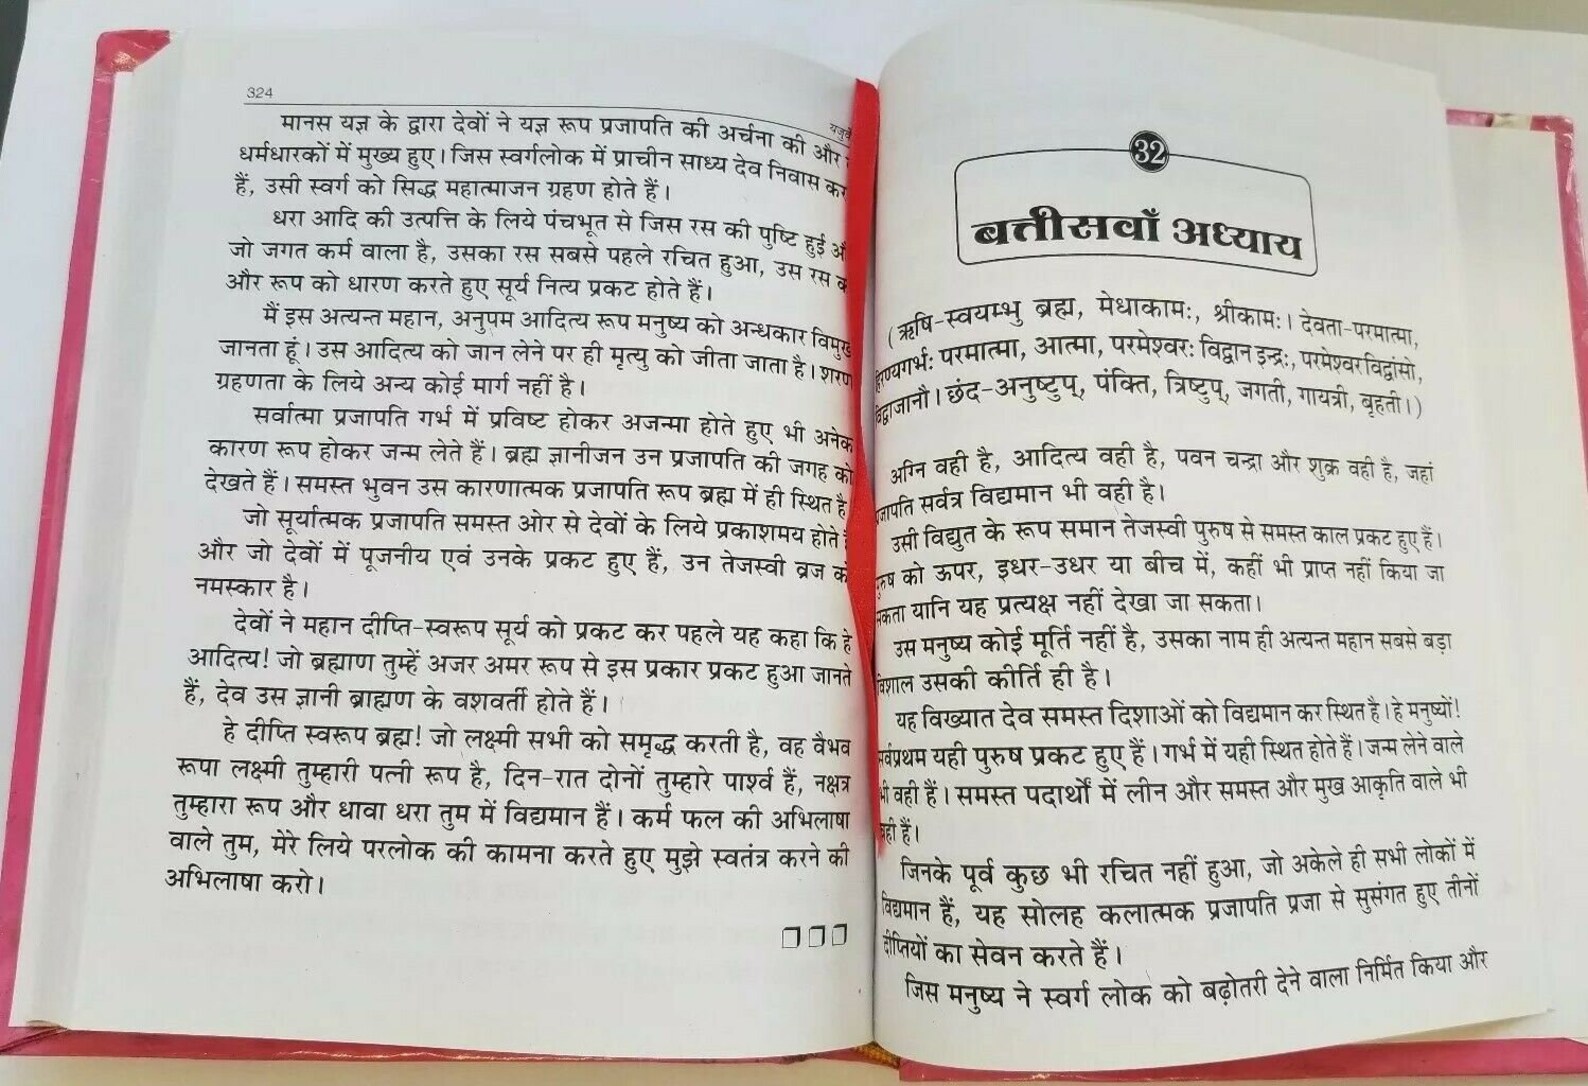 324
मानस यज्ञ के द्वारा देवों ने यज्ञ रूप प्रजापति की अर्चना की और
धर्मधारकों में मुख्य हुए। जिस स्वर्गलोक में प्राचीन साध्य देव निवास
हैं, उसी स्वर्ग को सिद्ध महात्माजन ग्रहण होते हैं।
धरा आदि की उत्पत्ति के लिये पंचभूत से जिस रस की पुष्टि हुई
जो जगत कर्म वाला है, उसका रस सबसे पहले रचित हुआ, उस रस
और रूप को धारण करते हुए सूर्य नित्य प्रकट होते हैं।
मैं इस अत्यन्त महान, अनुपम आदित्य रूप मनुष्य को अन्धकार विमुख
जानता हूं। उस आदित्य को जान लेने पर ही मृत्यु को जीता जाता है। शरण
ग्रहणता के लिये अन्य कोई मार्ग नहीं है।
सर्वात्मा प्रजापति गर्भ में प्रविष्ट होकर अजन्मा होते हुए भी अनेक
कारण रूप होकर जन्म लेते हैं। ब्रह्म ज्ञानीजन उन प्रजापति की जगह को
देखते हैं। समस्त भुवन उस कारणात्मक प्रजापति रूप ब्रह्म में ही स्थित है
जो सूर्यात्मक प्रजापति समस्त ओर से देवों के लिये प्रकाशमय होते
और जो देवों में पूजनीय एवं उनके प्रकट हुए हैं, उन तेजस्वी व्रज को
नमस्कार है।
देवों ने महान दीप्ति-स्वरूप सूर्य को प्रकट कर पहले यह कहा कि हे
आदित्य! जो ब्रह्माण तुम्हें अजर अमर रूप से इस प्रकार प्रकट हुआ जानते
हैं, देव उस ज्ञानी ब्राह्मण के वशवर्ती होते हैं।
हे दीप्ति स्वरूप ब्रह्म! जो लक्ष्मी सभी को समृद्ध करती है, वह वैभव
रूपा लक्ष्मी तुम्हारी पत्नी रूप है, दिन-रात दोनों तुम्हारे पार्श्व हैं, नक्षत्र
तुम्हारा रूप और धावा धरा तुम में विद्यमान हैं। कर्म फल की अभिलाषा
वाले तुम, मेरे लिये परलोक की कामना करते हुए मुझे स्वतंत्र करने की
अभिलाषा करो।
32
बत्तीसवाँ अध्याय
(ऋषि-स्वयम्भु ब्रह्म, मेधाकामः, श्रीकामः। देवता-परमात्मा,
परमात्मा, आत्मा, परमेश्वरः विद्वान इन्द्रः, परमेश्वरविद्वांसो,
छंद-अनुष्टुप्, पंक्ति, त्रिष्टुप्, जगती, गायत्री, बृहती।)
अग्नि वही है, आदित्य वही है, पवन चन्द्रा और शुक्र वही है, जहां
सर्वत्र विद्यमान भी वही है।
उसी विद्युत के रूप समान तेजस्वी पुरुष से समस्त काल प्रकट हुए हैं।
को ऊपर, इधर-उधर या बीच में, कहीं भी प्राप्त नहीं किया जा
सकता यानि यह प्रत्यक्ष नहीं देखा जा सकता।
उस मनुष्य कोई मूर्ति नहीं है, उसका नाम ही अत्यन्त महान सबसे बड़ा
विशाल उसकी कीर्ति ही है।
यह विख्यात देव समस्त दिशाओं को विद्यमान कर स्थित है। हे मनुष्यों!
सर्वप्रथम यही पुरुष प्रकट हुए हैं। गर्भ में यही स्थित होते हैं। जन्म लेने वाले
भी वही हैं। समस्त पदार्थों में लीन और समस्त और मुख आकृति वाले भी
वही हैं।
जिनके पूर्व कुछ भी रचित नहीं हुआ, जो अकेले ही सभी लोकों में
विद्यमान हैं, यह सोलह कलात्मक प्रजापति प्रजा से सुसंगत हुए तीनों
दीप्तियों का सेवन करते हैं।
जिस मनुष्य ने स्वर्ग लोक को बढ़ोतरी देने वाला निर्मित किया और